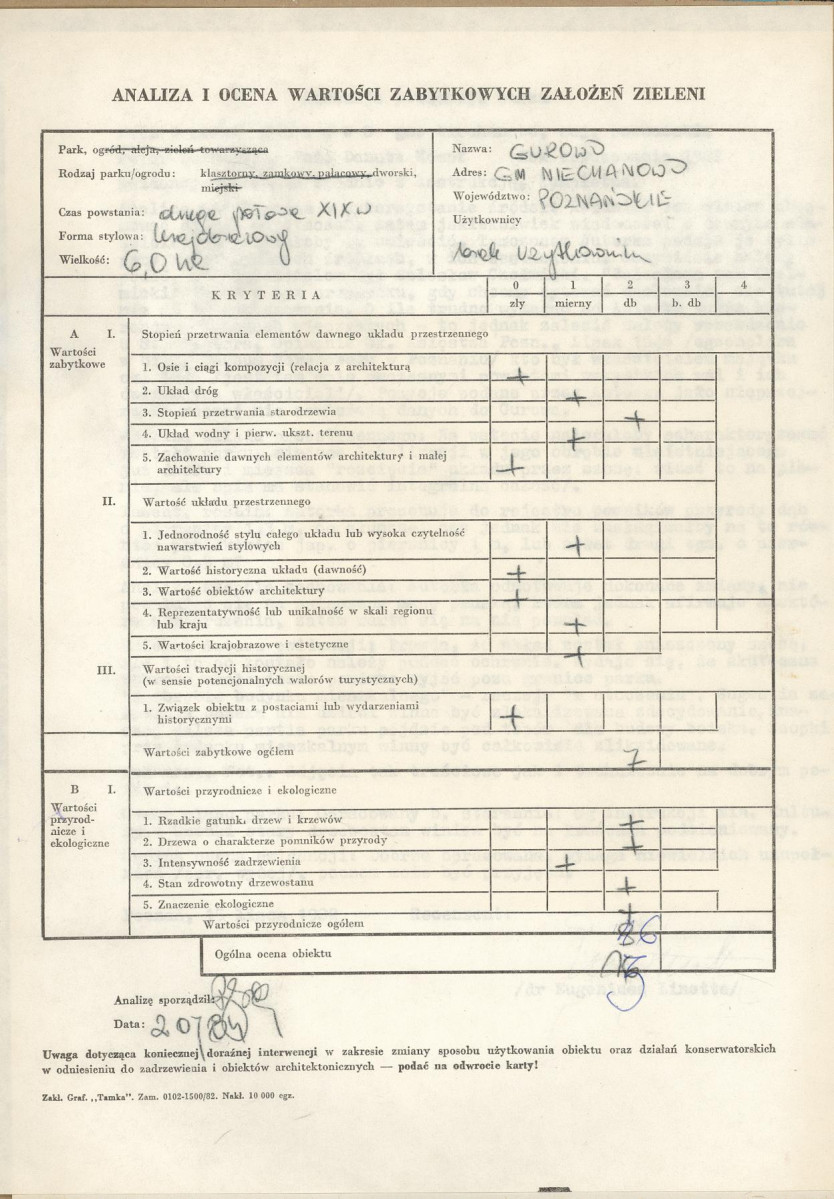 ANALIZA I OCENA WARTOŚCI ZABYTKOWYCH ZAŁOŻEŃ ZIELENI
Park, ogród, aleja, zieleń towarzysząca
Rodzaj parku/ogrodu: klasztorny, zamkowy, pałacowy, dworski,
miejski
Czas powstania: druga połowa XIX w
Forma stylowa: krajobrazowy
Wielkość: 6,0 ha
Nazwa: GUROWO
Adres: GM NIECHANOWO
Województwo: POZNAŃSKIE
Użytkownicy
brak użytkownika
KRYTERIA
0 1 2 3 4
zły mierny db b. db
A I. Stopień przetrwania elementów dawnego układu przestrzennego
Wartości
zabytkowe
1. Osie i ciągi kompozycji (relacja z architekturą +
2. Układ dróg +
3. Stopień przetrwania starodrzewia +
4. Układ wodny i pierw. ukszt. terenu +
5. Zachowanie dawnych elementów architektury i małej
architektury +
II. Wartość układu przestrzennego
1. Jednorodność stylu całego układu lub wysoka czytelność
nawarstwień stylowych +
2. Wartość historyczna układu (dawność) +
3. Wartość obiektów architektury +
4. Reprezentatywność lub unikalność w skali regionu
lub kraju +
5. Wartości krajobrazowe i estetyczne +
III. Wartości tradycji historycznej
(w sensie potencjonalnych walorów turystycznych)
1. Związek obiektu z postaciami lub wydarzeniami
historycznymi +
Wartości zabytkowe ogółem 7
B I. Wartości przyrodnicze i ekologiczne
Wartości
przyrod-
nicze i
ekologiczne
1. Rzadkie gatunki drzew i krzewów +
2. Drzewa o charakterze pomników przyrody +
3. Intensywność zadrzewienia +
4. Stan zdrowotny drzewostanu +
5. Znaczenie ekologiczne +
Wartości przyrodnicze ogółem
Ogólna ocena obiektu
/dr Eugeniusz Linette/
Analizę sporządził:
Data:
Uwaga dotycząca koniecznej doraźnej interwencji w zakresie zmiany sposobu użytkowania obiektu oraz działań konserwatorskich
w odniesieniu do zadrzewienia i obiektów architektonicznych — podać na odwrocie karty!
Zakł. Graf. „Tamka". Zam. 0102-1500/82. Nakł. 10 000 egz.